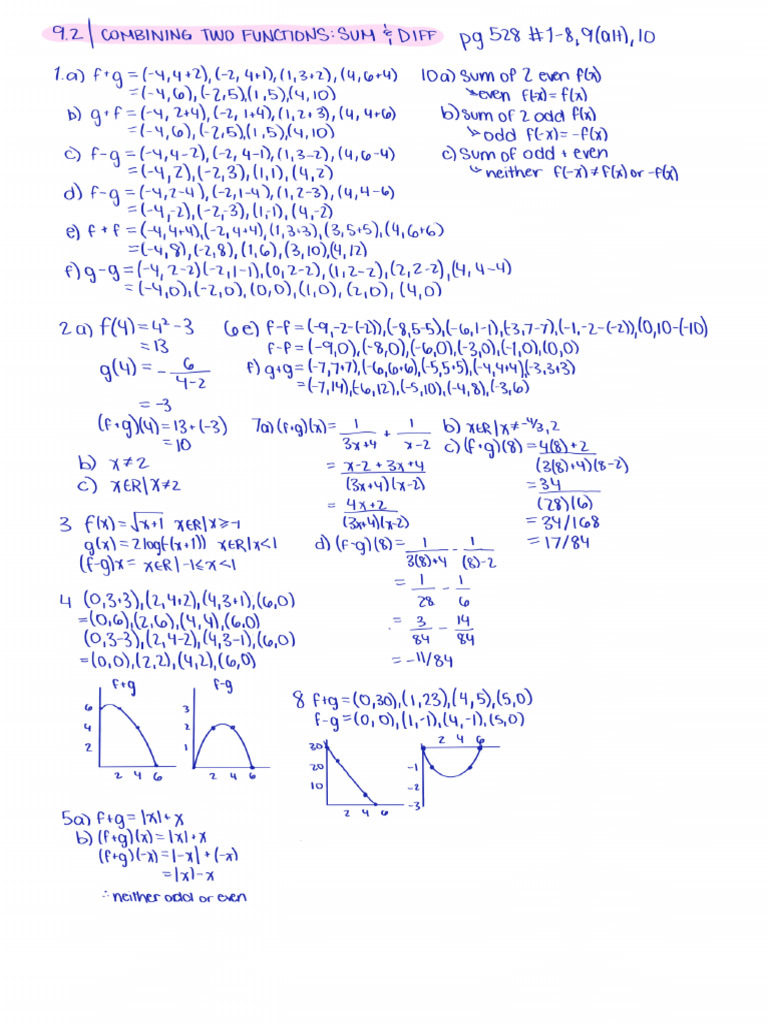 9.2 | COMBINING TWO FUNCTIONS: SUM & DIFF pg 528 #1-8, 9(alt), 10
1.a) f+g = (-4, 4+2), (-2, 4+1), (1, 3+2), (4, 6+4)
= (-4, 6), (-2, 5), (1, 5), (4, 10)
b) g+f = (-4, 2+4), (-2, 1+4), (1, 2+3), (4, 4+6)
= (-4, 6), (-2, 5), (1, 5), (4, 10)
c) f-g = (-4, 4-2), (-2, 4-1), (1, 3-2), (4, 6-4)
= (-4, 2), (-2, 3), (1, 1), (4, 2)
d) f-g = (-4, 2-4), (-2, 1-4), (1, 2-3), (4, 4-6)
= (-4, -2), (-2, -3), (1, -1), (4, -2)
e) f+f = (-4, 4+4), (-2, 4+4), (1, 3+3), (3, 5+5), (4, 6+6)
= (-4, 8), (-2, 8), (1, 6), (3, 10), (4, 12)
f) g-g = (-4, 2-2) (-2, 1-1), (0, 2-2), (1, 2-2), (2, 2-2), (4, 4-4)
= (-4, 0), (-2, 0), (0, 0), (1, 0), (2, 0), (4, 0)
10a) Sum of 2 even f(x)
↳ even f(-x) = f(x)
b) Sum of 2 odd f(x)
↳ odd f(-x) = -f(x)
c) Sum of odd + even
↳ neither f(-x) ≠ f(x) or -f(x)
2a) f(4) = 4² - 3
= 13
g(4) = - 6
4-2
= -3
(f+g)(4) = 13 + (-3)
= 10
b) x ≠ 2
c) xER | x ≠ 2
6e) f-f = (-9, -2-(-2)), (-8, 5-5), (-6, 1-1), (-3, 7-7), (-1, -2-(-2)), (0, 10-(-10)
f-f = (-9, 0), (-8, 0), (-6, 0), (-3, 0), (-1, 0), (0, 0)
f) g+g = (-7, 7+7), (-6, 6+6), (-5, 5+5), (-4, 4+4) (-3, 3+3)
= (-7, 14), (-6, 12), (-5, 10), (-4, 8), (-3, 6)
7a) (f+g)(x) = 1 + 1
3x+4 x-2
= x-2 + 3x+4
(3x+4)(x-2)
= 4x+2
(3x+4)(x-2)
b) xER | x ≠ -4/3, 2
c) (f+g)(8) = 4(8)+2
(3(8)+4)(8-2)
= 34
(28)(6)
= 34/168
= 17/84
d) (f-g)(8) = 1 - 1
3(8)+4 (8)-2
= 1 - 1
28 6
= 3 - 14
84 84
= -11/84
3 f(x) = √x+1 xER | x ≥ -1
g(x) = 2log(-(x+1)) xER | x < 1
(f-g)x = xER | -1 ≤ x < 1
4 (0, 3+3), (2, 4+2), (4, 3+1), (6, 0)
= (0, 6), (2, 6), (4, 4), (6, 0)
(0, 3-3), (2, 4-2), (4, 3-1), (6, 0)
= (0, 0), (2, 2), (4, 2), (6, 0)
f+g
6
4
2
2 4 6
f-g
3
2
1
2 4 6
8 f+g = (0, 30), (1, 23), (4, 5), (5, 0)
f-g = (0, 0), (1, -1), (4, -1), (5, 0)
30
20
10
2 4 6
2 4 6
-1
-2
-3
5a) f+g = |x| + x
b) (f+g)(x) = |x| + x
(f+g)(-x) = |-x| + (-x)
= |x| - x
∴ neither odd or even